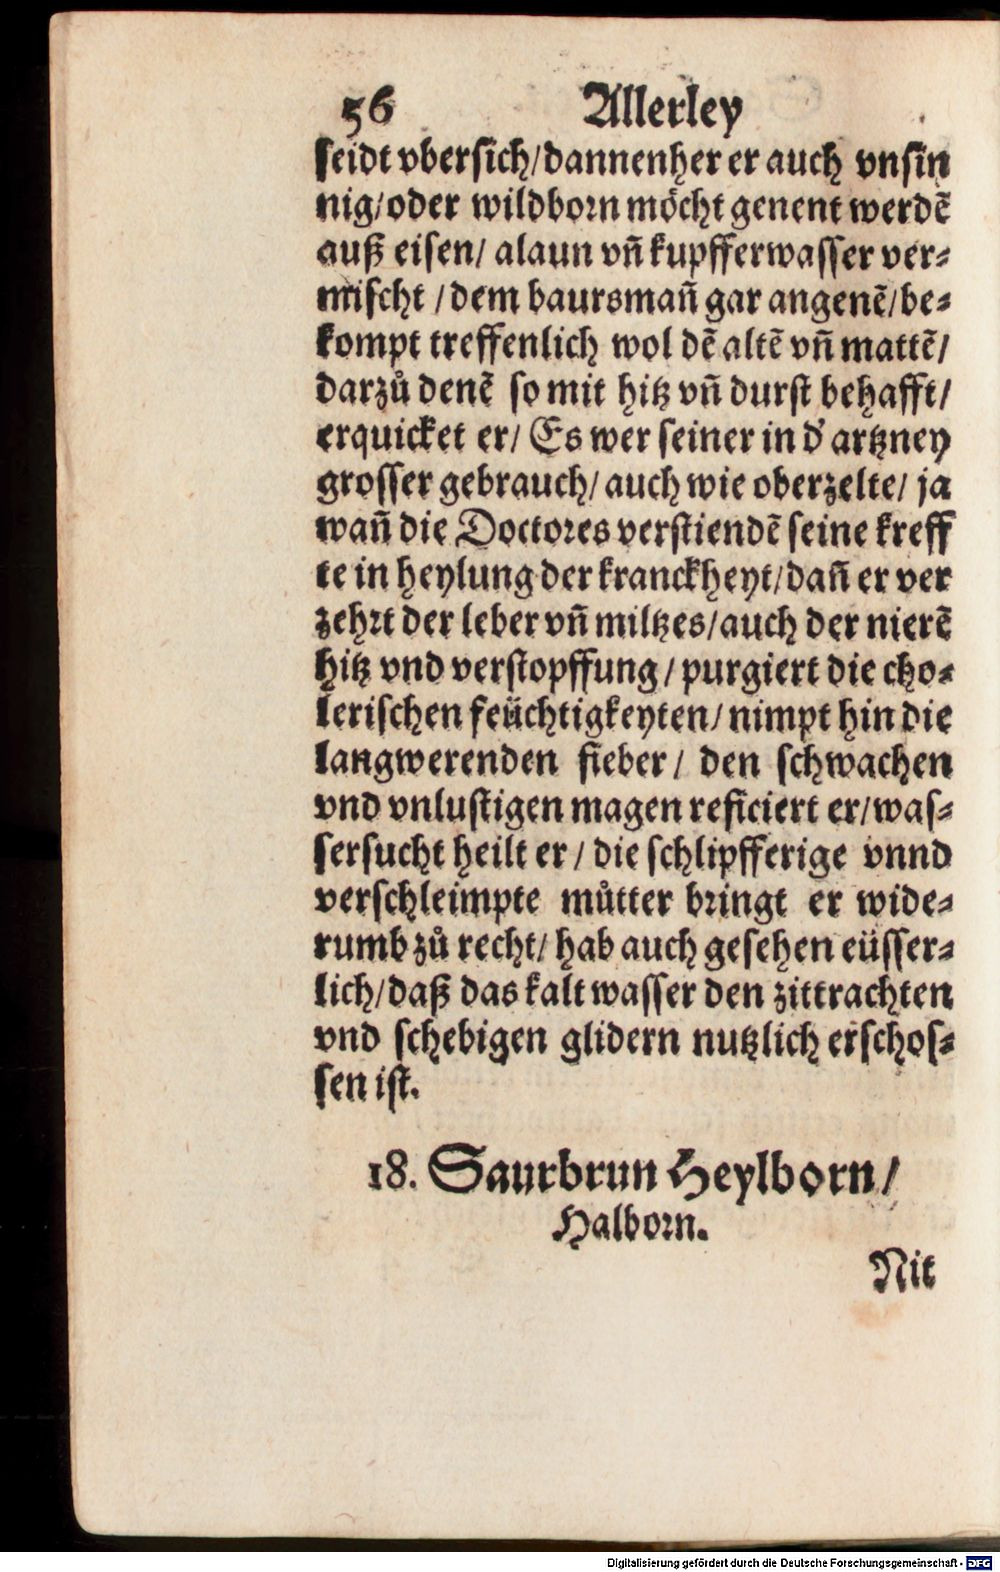 56 Allerley
seidt vbersich/dannenher er auch vnsin
nig/oder wildborn möcht genent werdẽ
auß eisen/ alaun vñ kupfferwasser ver⸗
mischt /dem baursmañ gar angenẽ/be⸗
kompt treffenlich wol dẽ altẽ vñ mattẽ/
darzů denẽ so mit hitz vñ durst behafft/
erquicket er/ Es wer seiner in d' artzney
grosser gebrauch/ auch wie oberzelte/ ja
wañ die Doctores verstiendẽ seine kreff
te in heylung der kranckheyt/dañ er ver
zehrt der leber vñ miltzes/auch der nierẽ
hitz vnd verstopffung/purgiert die cho⸗
lerischen feüchtigkeyten/nimpt hin die
langwerenden fieber/ den schwachen
vnd vnlustigen magen reficiert er/was⸗
sersucht heilt er/ die schlipfferige vnnd
verschleimpte můtter bringt er wide⸗
rumb zů recht/ hab auch gesehen eüsser⸗
lich/daß das kalt wasser den zittrachten
vnd schebigen glidern nutzlich erschos⸗
sen ist.
18. Saurbrun Heylborn/
Halborn.
Nit
Digitalisierung gefördert durch die Deutsche Forschungsgemeinschaft - DFG